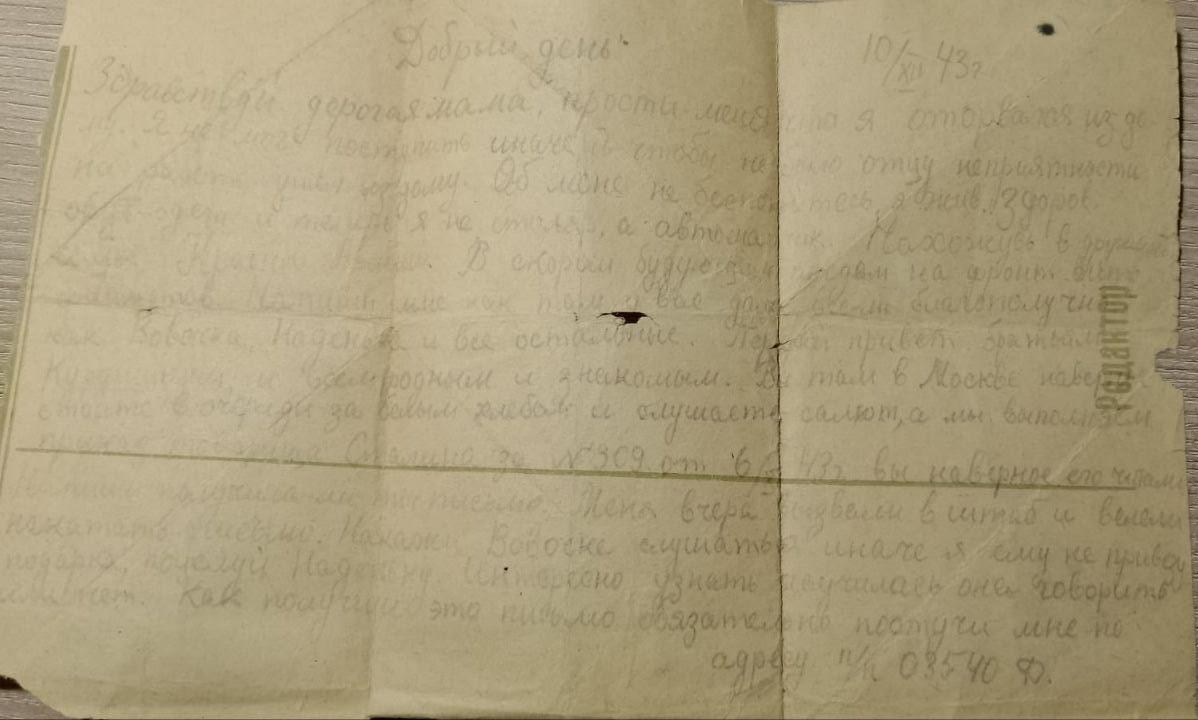 Добрый день
10/XII 43г
Здравствуй дорогая мама, прости меня что я оторвался из до
му. Я не мог поступать иначе чтобы не было отцу неприятности
на ушел из дому. Об мне не беспокойтесь я жив, здоров.
обут-одет и я не столяр, а Нахожусь в
Красной В скором будующем поедем на фронт бить
мне как там у вас дома все ли благополучно
как Вовочка, Наденька и все остальные. привет братьям
и всем родным и знакомым. Вы там в Москве наверное
стоите в очереди за белым хлебом и слушаете салют, а мы выполняем
приказ товарища Сталина за № 309 от 6/ 43г вы наверное его читали
получила-ли ты письмо. Меня вчера вызвали в штаб и велели
письмо. Накажи Вовочке слушаться иначе я ему не привезу
подарка, поцелуй Наденьку интересно узнать научилась она говорить
или нет. Как получишь это письмо обязательно мне по
адресу п/п 03540 Ф.
Редактор